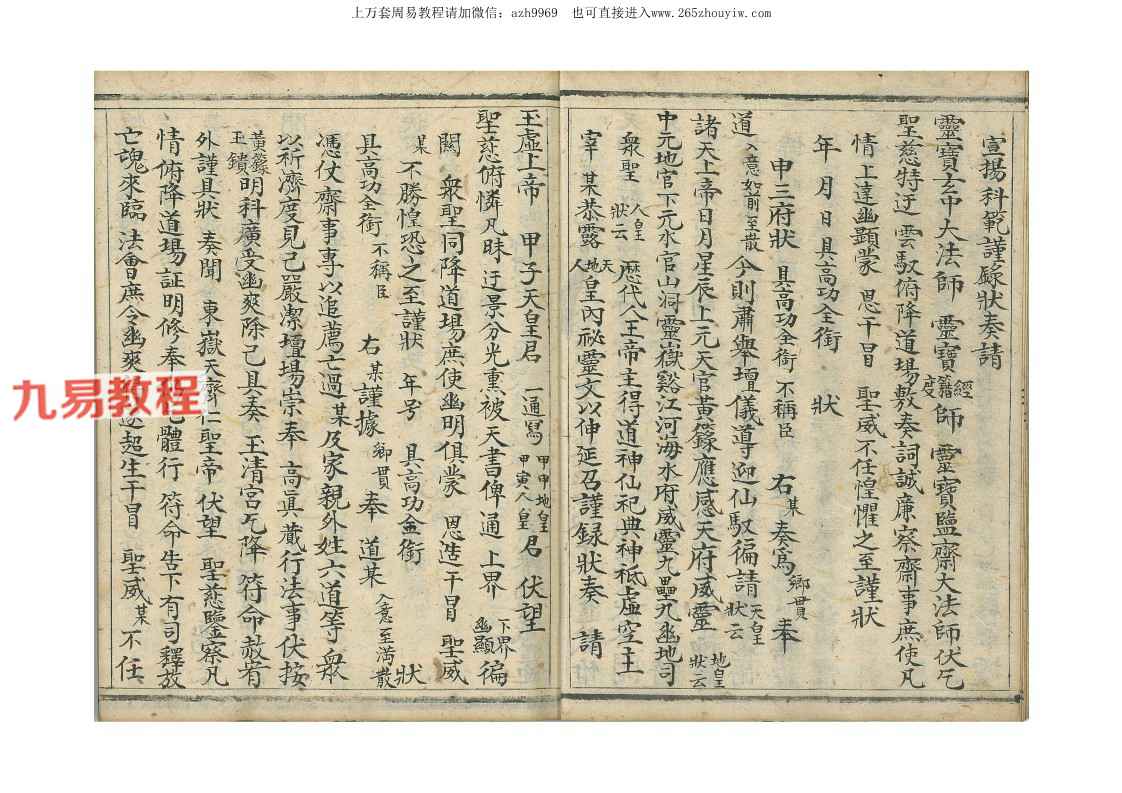 上万套周易教程请加微信：azh9969　也可直接进入www.265zhouyiw.com
宣揚科範謹錄狀奏請
靈寶玄中大法師　靈寶經籍度師　靈寶監齋大法師伏乞
聖慈特迂雲馭俯降道場敷奏詞誠廉察齋事庶使凡
情上達幽顯蒙　恩干冒　聖威不任惶懼之至謹狀
年　月　日　具高功全銜　狀
申三府狀　具高功全銜　不稱臣　右某奏爲鄉貫奉
道入意如前至散今則肅舉壇儀導迎仙馭徧請天皇狀云
諸天上帝日月星辰上元天官黃籙應感天府威靈地皇狀云
中元地官下元水官山洞靈嶽谿江河海水府威靈九壘九幽地司
衆聖人皇狀云　歷代人王帝主得道神仙祀典神祇虛空主
宰　某恭露天地人皇內祕靈文以伸延召謹録狀奏　請
玉虛上帝　甲子天皇君　一通寫甲申地皇甲寅人皇君　伏望
聖慈俯憐凡昧迂景分光熏被天書俾通　上界下界幽顯徧
闕　衆聖同降道場庶使幽明俱蒙　恩造干冒　聖威
某不勝惶恐之至謹狀　年号　具高功全銜　狀
具高功全銜　不稱臣　右某謹據鄉貫奉　道某入意至滿散
憑仗齋事專以追薦亡過某及家親外姓六道等衆
以祈濟度見己嚴潔壇場崇奉　高眞蕆行法事伏按
黃籙玉鐀明科廣受幽爽除己具奏　玉清宮乞降　符命赦宥
外謹具狀　奏聞　東嶽天齊仁聖帝　伏望　聖慈鑒察凡
情俯降道場証明修奉體行　符命告下有司釋放
亡魂來臨　法會庶令幽爽逐超生干冒　聖威某不任
九易教程